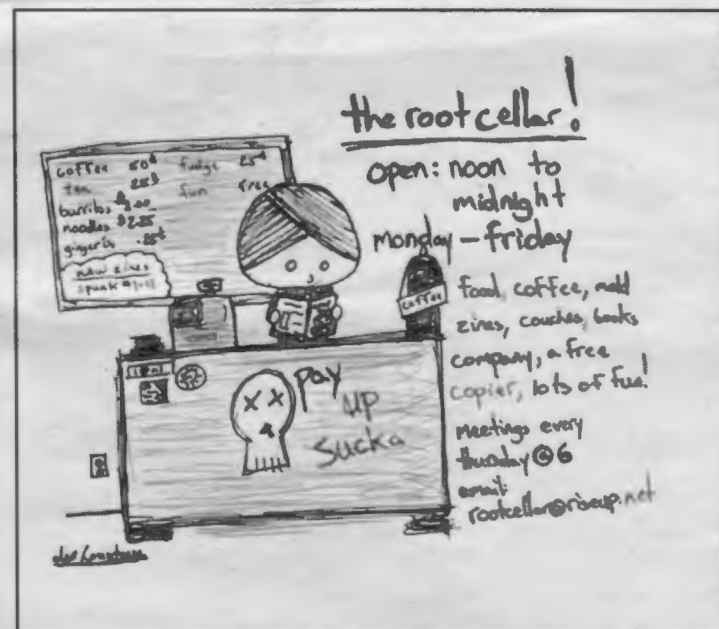 the root cellar!
open: noon to
midnight
monday – friday
food, coffee, mold
zines, couches, books
company, a free
copier, lots of fun!
meetings every
thursday @ 6
email:
rootcellar@riseup.net
coffee 50¢
tea 25¢
burritos $2.00
noodles $2.25
gingeris .25¢
fudge 25¢
fun free
new zines
spunk
coffee
pay
up
sucka